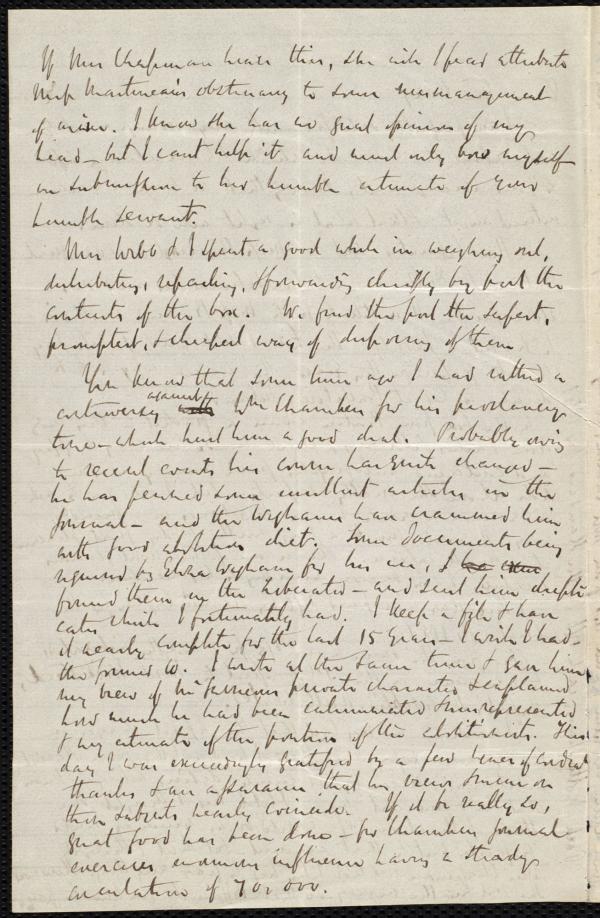 If Mrs Chapman hears this, she will I fear attribute
Miss Martineau's obstinacy to some mismanagement
of mine. I know she has no great opinion of my
head - but I cant help it and must only bow myself
in submission to her humble estimate of your
humble servant.
Mrs Webb & I spent a good while in weighing out,
distributing, repacking, & forwarding chiefly by post the
contents of the box. We find the post the safest,
promptest, & cheapest way of disposing of them
You know that some time ago I had rather a
controversy against with Wm Chambers for his proslavery
tone - which hurt him a good deal. Probably owing
to recent events his course has quite changed -
he has penned some excellent articles in the
Journal - and the Wighams have crammed him
with good abolition diet. Some documents being
required by Eliza Wigham for his use, I
found them in the Liberator - and sent him dupli
cates which I fortunately had. I keep a file & have
it nearly complete for the last 15 years - I wish I had
the former 10. I wrote at the same time & gave him
my view of Mr Garrisons private character & explained
how much he had been calumniated & misrepresented
& my estimate of the position of the abolitionists. This
day I was exceedingly gratified by a few lines of cordial
thanks & an assurance that his views & mine on
these subjects nearly coincide. If it be really so,
great good has been done - for Chambers Journal
exercises enormous influence having a steady
circulation of 70,000.